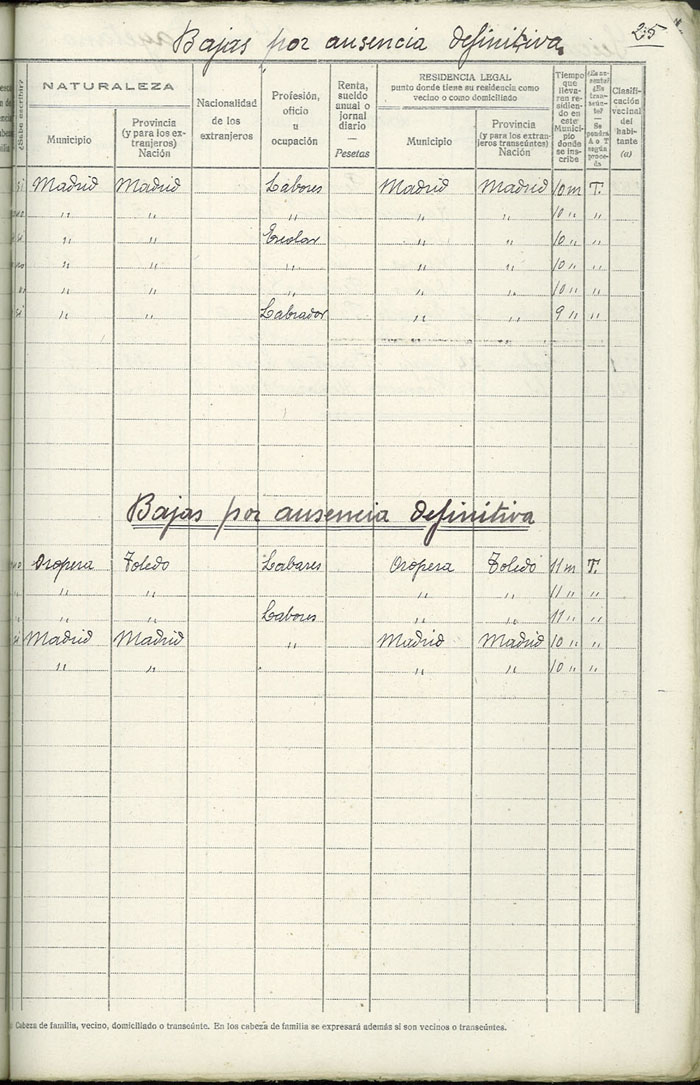 Bajas por ausencia definitiva.
25
¿Sabe escribir?
NATURALEZA
Municipio
Provincia
(y para los ex-
tranjeros)
Nación
Nacionalidad
de los
extranjeros
Profesión,
oficio
u
ocupación
Renta,
sueldo
anual o
jornal
diario
—
Pesetas
RESIDENCIA LEGAL
punto donde tiene su residencia como
vecino o como domiciliado
Municipio
Provincia
(y para los extran-
jeros transeúntes)
Nación
Tiempo
que
lleva-
ran re-
sidien-
do en
este
Munici-
pio
donde
se ins-
cribe
Clasifi-
cación
vecinal
del
habi-
tante
(a)
si Madrid Madrid Labores Madrid Madrid 10 m T.
" " " " " 10 " "
" " Escolar " " 10 " "
" " " " " 10 " "
" " " " " 10 " "
" " Labrador " " 9 " "
Bajas por ausencia definitiva
Oropera Toledo Labares Oropera Toledo 11 m T.
" " " " " 11 " "
" " Labores " " 11 " "
Madrid Madrid " Madrid Madrid 10 " "
" " " " 10 " "
Cabeza de familia, vecino, domiciliado o transeúnte. En los cabeza de familia se expresará además si son vecinos o transeúntes.